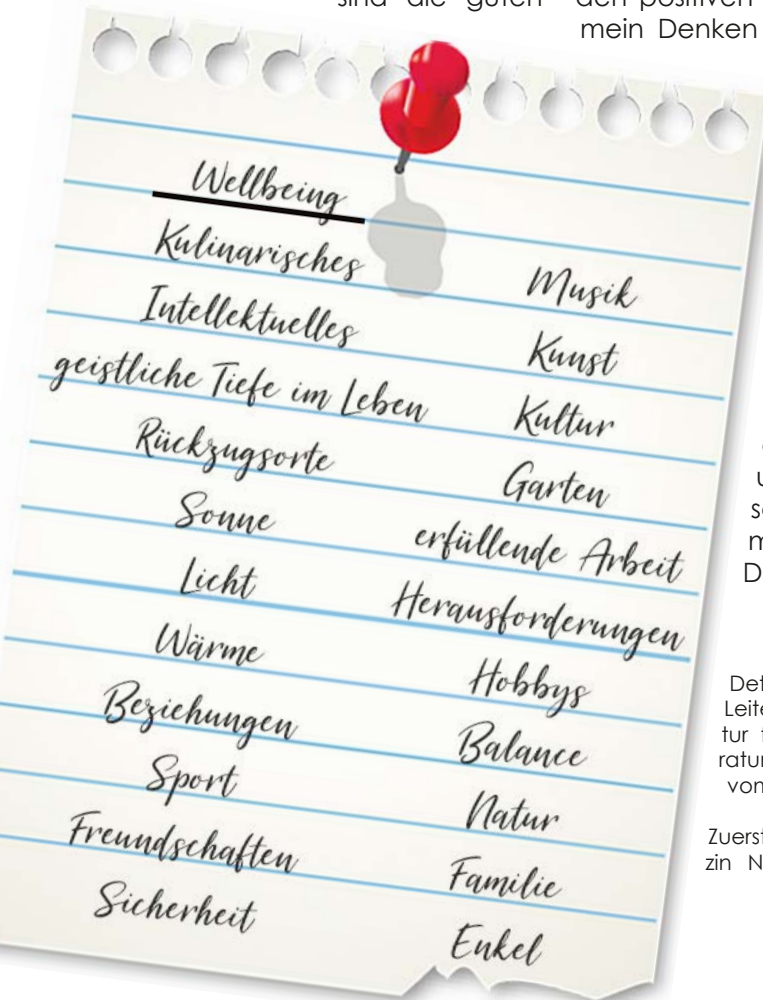 sind die guten den positiven
mein Denken
Wellbeing
Kulinarisches
Intellektuelles
geistliche Tiefe im Leben
Rückzugsorte
Sonne
Licht
Wärme
Beziehungen
Sport
Freundschaften
Sicherheit
Musik
Kunst
Kultur
Garten
erfüllende Arbeit
Herausforderungen
Hobbys
Balance
Natur
Familie
Enkel
D
Det
Leite
tur
ratur
von
Zuerst
zin N